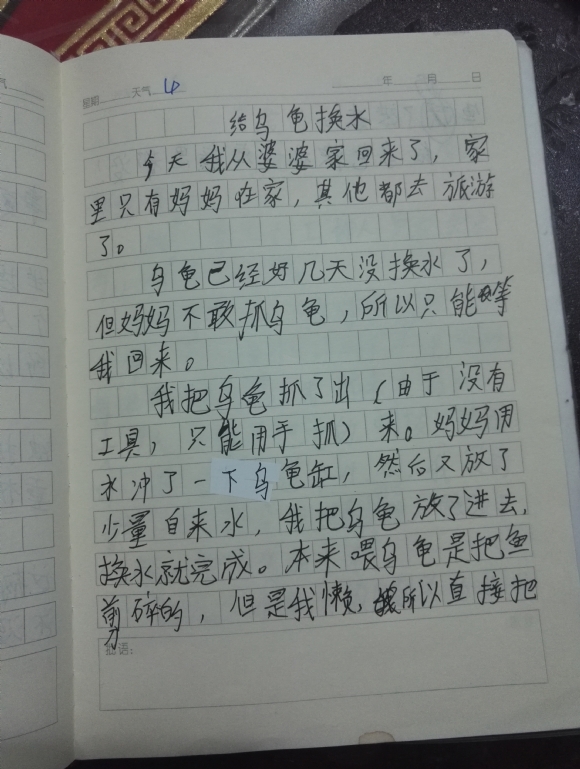 星期 天气 4 年 月 日
给乌龟换水
今天我从婆婆家回来了，家
里只有妈妈在家，其他都去旅游
了。
乌龟已经好几天没换水了，
但妈妈不敢抓乌龟，所以只能等
我回来。
我把乌龟抓了出（由于没有
工具，只能用手抓）来。妈妈用
水冲了一下乌龟缸，然后又放了
少量自来水，我把乌龟放了进去，
换水就完成。本来喂乌龟是把鱼
剪碎的，但是我懒，所以直接把
批语：